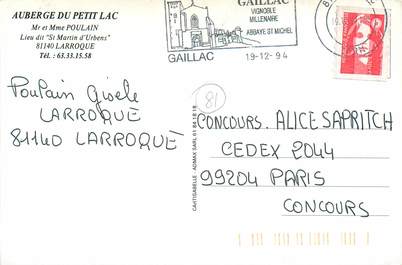 AUBERGE DU PETIT LAC
Mr et Mme POULAIN
Lieu dit "St Martin d'Urbens"
81140 LARROQUE
Tél. : 63.33.15.58
GAILLAC
VIGNOBLE
MILLENAIRE
ABBAYE ST MICHEL
GAILLAC
19-12-94
Poulain Gisele
LARROQUE
81140 LARROQUE
81
CONCOURS. ALICE SAPRITCH
CEDEX 2044
99204 PARIS
CONCOURS